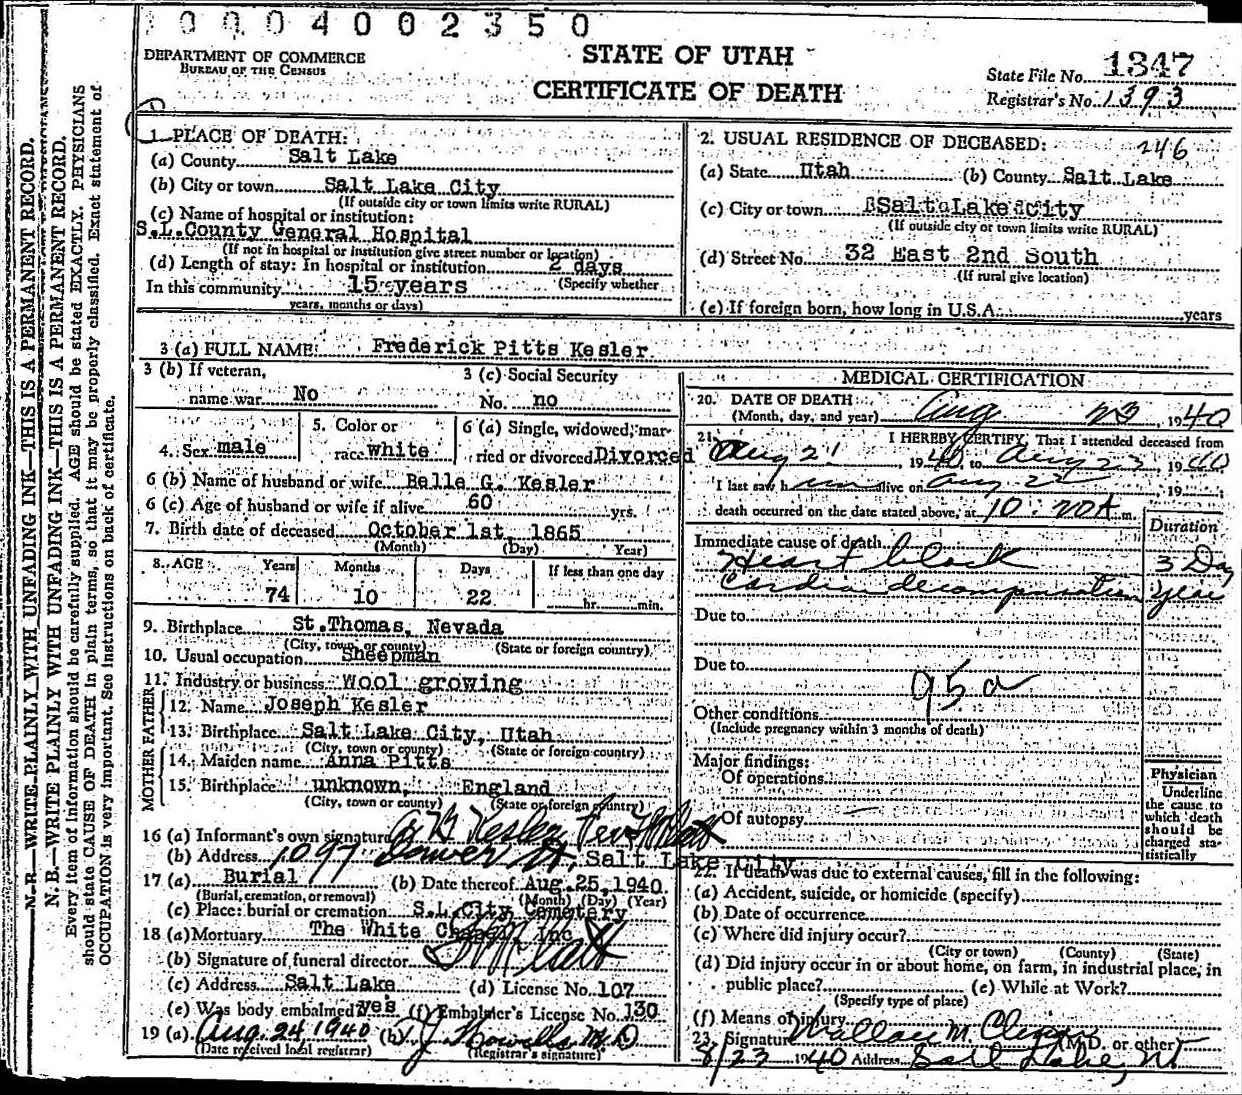 0004002350
DEPARTMENT OF COMMERCE
BUREAU OF THE CENSUS
STATE OF UTAH
CERTIFICATE OF DEATH
State File No. 1347
Registrar's No. 1393
1. PLACE OF DEATH:
(a) County Salt Lake
(b) City or town Salt Lake City
(If outside city or town limits write RURAL)
(c) Name of hospital or institution:
S.L.County General Hospital
(If not in hospital or institution give street number or location)
(d) Length of stay: In hospital or institution 2 days
In this community 15 years (Specify whether
years, months or days)
2. USUAL RESIDENCE OF DECEASED: 246
(a) State Utah (b) County Salt Lake
(c) City or town Salt Lake City
(If outside city or town limits write RURAL)
(d) Street No. 32 East 2nd South
(If rural give location)
(e) If foreign born, how long in U.S.A. years
3 (a) FULL NAME: Frederick Pitts Kesler
3 (b) If veteran,
name war No
3 (c) Social Security
No. no
4. Sex male
5. Color or
race White
6 (a) Single, widowed, mar-
ried or divorced Divorced
6 (b) Name of husband or wife Belle G. Kesler
6 (c) Age of husband or wife if alive 60 yrs.
7. Birth date of deceased October 1st, 1865
(Month) (Day) Year)
8. AGE Years Months Days If less than one day
74 10 22 hr. min.
9. Birthplace St.Thomas, Nevada
(City, town, or county) (State or foreign country)
10. Usual occupation Sheepman
11. Industry or business Wool growing
FATHER
12. Name Joseph Kesler
13. Birthplace Salt Lake City, Utah
(City, town or county) (State or foreign country)
MOTHER
14. Maiden name Anna Pitts
15. Birthplace unknown, England
(City, town or county) (State or foreign country)
16 (a) Informant's own signature Kesler
(b) Address 1097 St. Salt Lake City
17 (a) Burial (b) Date thereof Aug.25,1940.
(Burial, cremation, or removal) (Month) (Day) (Year)
(c) Place: burial or cremation S.L.City Cemetery
18 (a) Mortuary The White Chapel Inc
(b) Signature of funeral director
(c) Address Salt Lake (d) License No. 107
(e) Was body embalmed yes (f) Embalmer's License No. 130
19 (a) Aug. 24, 1940 (b) M.D
(Date received local registrar) (Registrar's signature)
MEDICAL CERTIFICATION
20. DATE OF DEATH:
(Month, day, and year) Aug 23, 1940
21. I HEREBY CERTIFY, That I attended deceased from
Aug 21, 1940, to Aug 23, 1940
I last saw him alive on Aug 22, 19
death occurred on the date stated above, at 10:20A m.
Duration
Immediate cause of death
Heart block 3 Day
Cardiac decompensation year
Due to
Due to
95a
Other conditions
(Include pregnancy within 3 months of death)
Major findings:
Of operations
Of autopsy
Physician
Underline
the cause to
which death
should be
charged sta-
tistically
22. If death was due to external causes, fill in the following:
(a) Accident, suicide, or homicide (specify)
(b) Date of occurrence
(c) Where did injury occur?
(City or town) (County) (State)
(d) Did injury occur in or about home, on farm, in industrial place, in
public place? (e) While at Work?
(Specify type of place)
(f) Means of injury
23. Signature Wallace M. (M.D. or other)
8/23 1940 Address Salt Lake, Ut
N. B.—WRITE PLAINLY WITH UNFADING INK—THIS IS A PERMANENT RECORD.
N. B.—WRITE PLAINLY WITH UNFADING INK—THIS IS A PERMANENT RECORD.
Every item of information should be carefully supplied. AGE should be stated EXACTLY. PHYSICIANS
should state CAUSE OF DEATH in plain terms, so that it may be properly classified. Exact statement of
OCCUPATION is very important. See instructions on back of certificate.